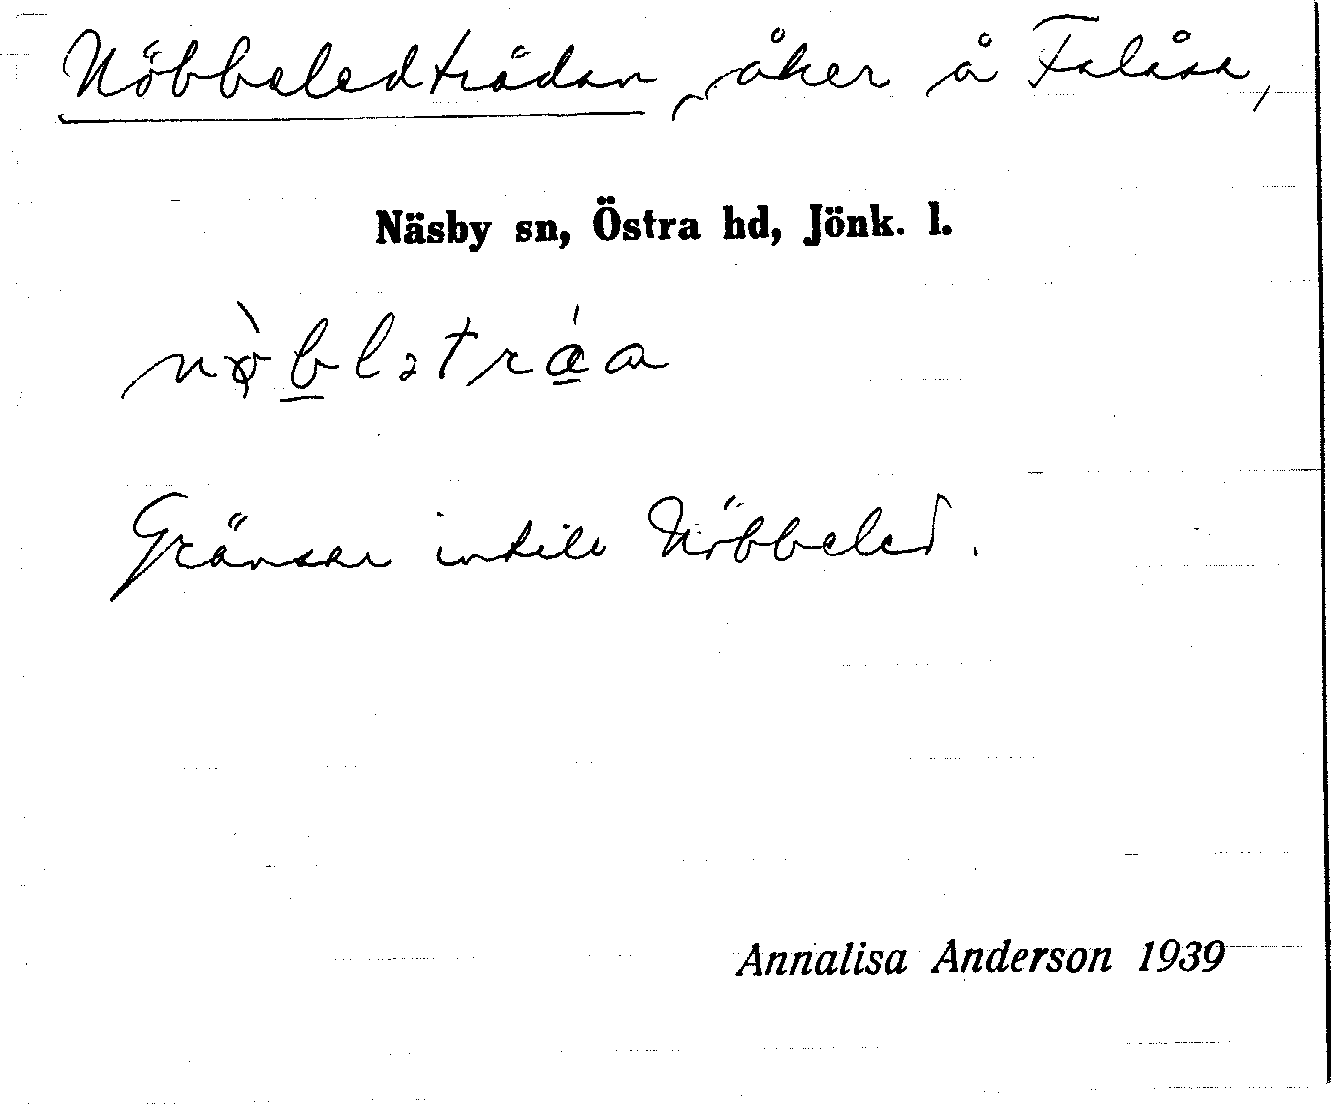 Nöbbeledträdan, åker å Falåsa,
Näsby sn, Östra hd, Jönk. l.
Gränsar intill Nöbbeled.
Annalisa Anderson 1939